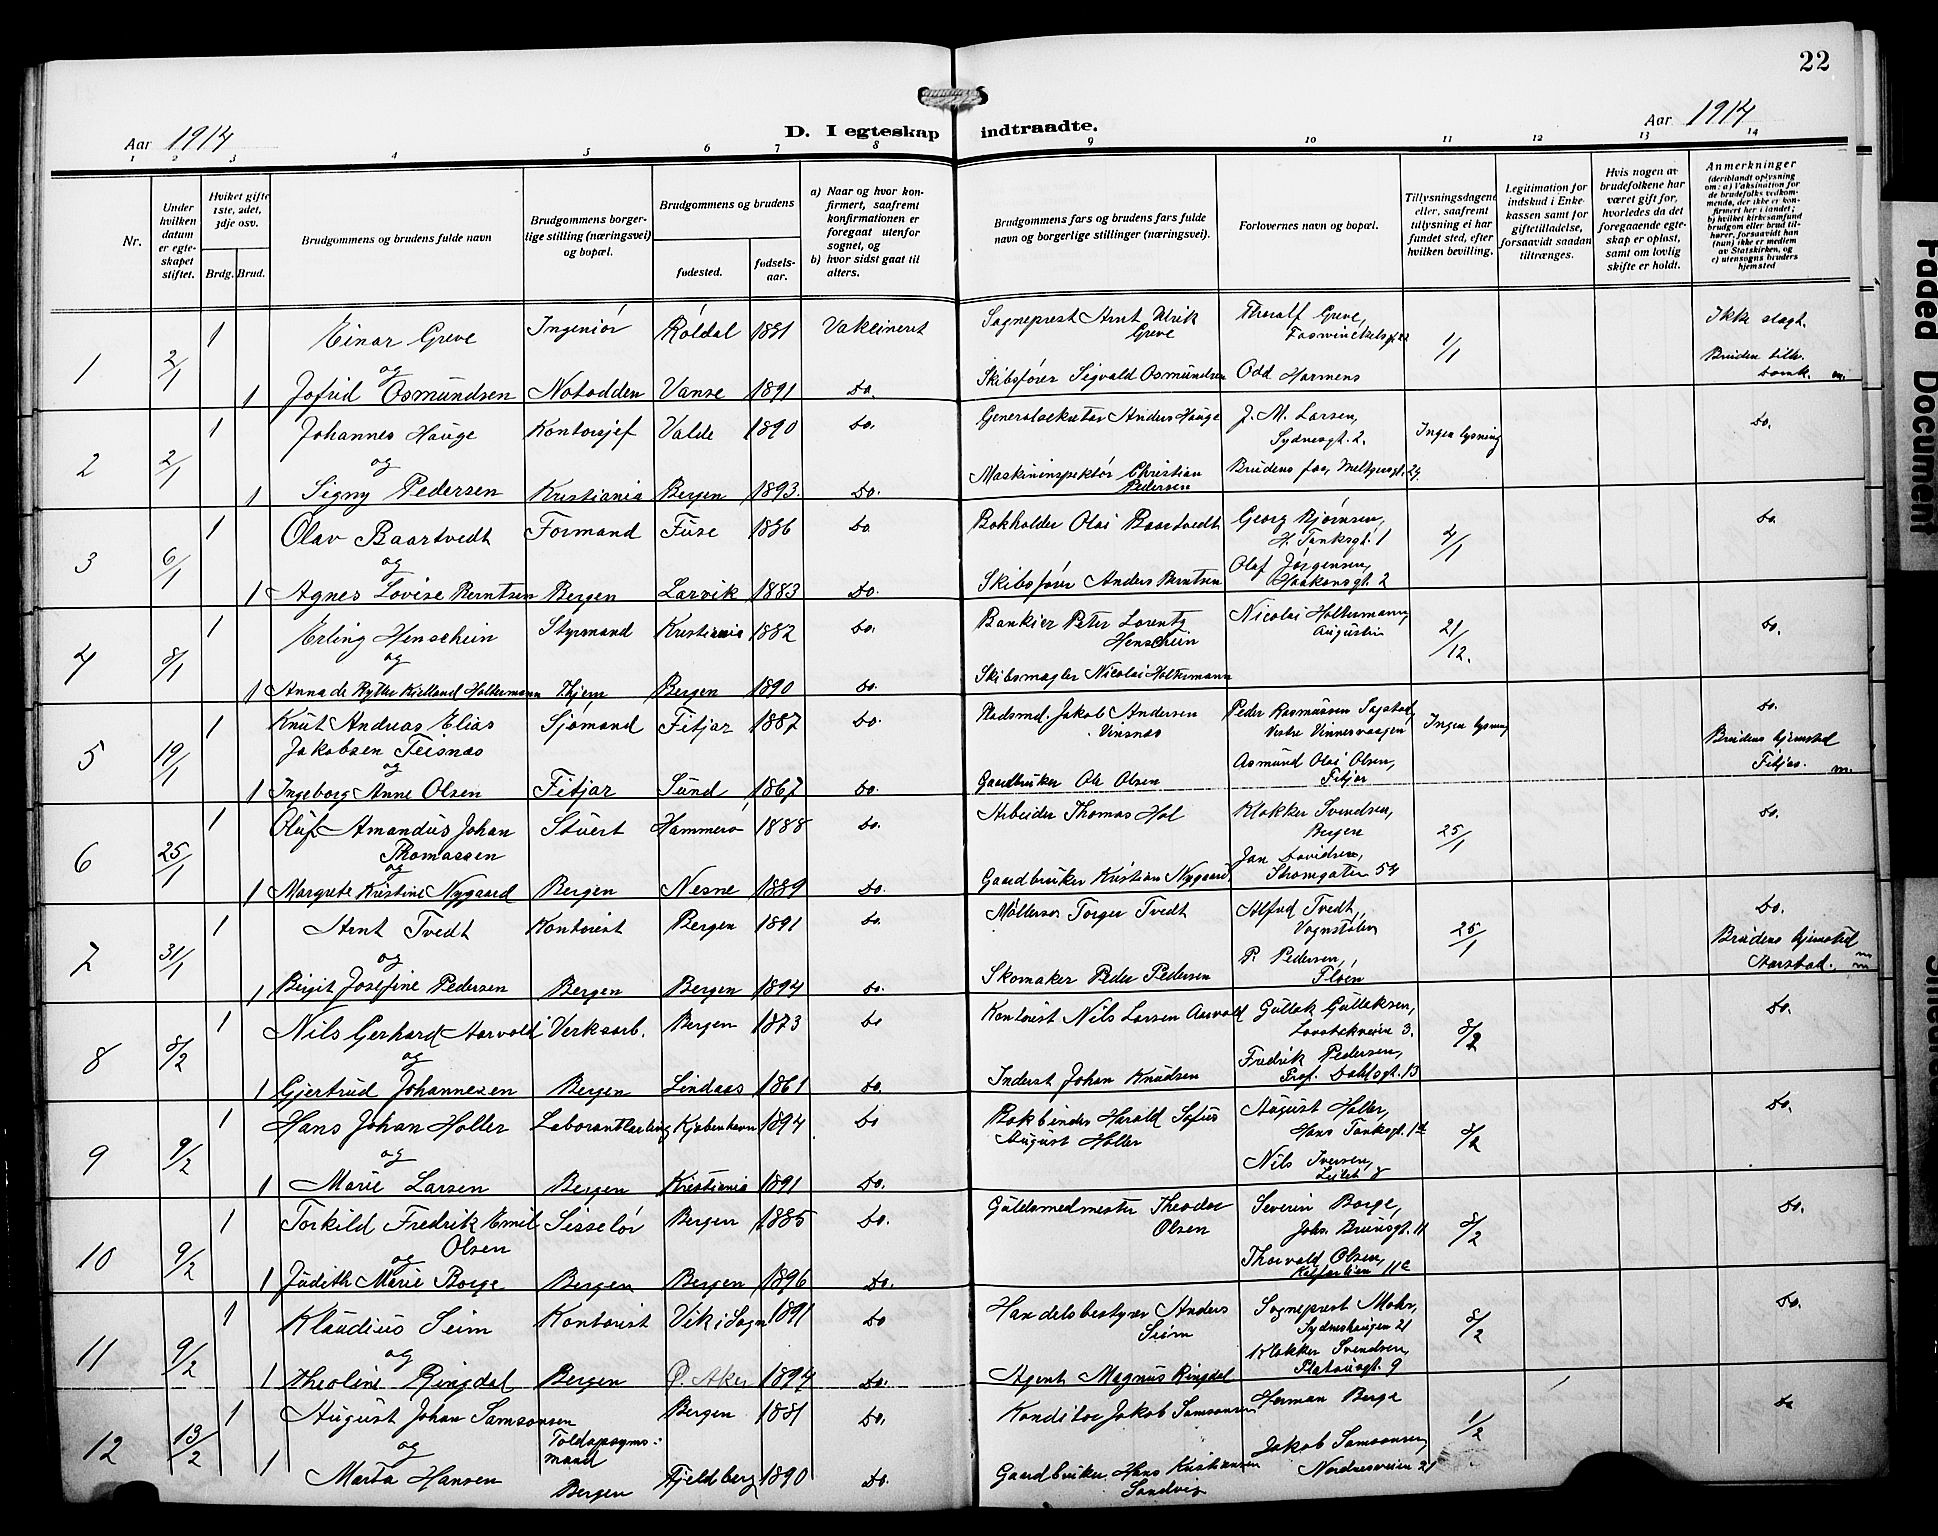 22
Aar 1914
D. I egteskap indtraadte.
Aar 1914
1 2 3 4 5 6 7 8 9 10 11 12 13 14
Nr.
Under hvilken datum er egteskapet stiftet.
Hvilket gifte 1ste, 2det, 3dje osv.
Brdg. Brud.
Brudgommens og brudens fulde navn
Brudgommens borgerlige stilling (næringsvei) og bopæl.
Brudgommens og brudens
fødested.
fødselsaar.
a) Naar og hvor konfirmert, saafremt konfirmationen er foregaat utenfor sognet, og
b) hvor sidst gaat til alters.
Brudgommens fars og brudens fars fulde navn og borgerlige stillinger (næringsvei).
Forlovernes navn og bopæl.
Tillysningsdagene eller, saafremt tillysning ei har fundet sted, efter hvilken bevilling.
Legitimation for indskud i Enkekassen samt for giftetilladelse, forsaavidt saadan tiltrænges.
Hvis nogen av brudefolkene har været gift før, hvorledes da det foregaaende egteskap er opløst, samt om lovlig skifte er holdt.
Anmerkninger
(deriblandt oplysning om: a) Vaksination for de brudefolks vedkommende, der ikke er konfirmert her i landet; b) hvilket kirkesamfund brudgom eller brud tilhører, forsaavidt han (hun) ikke er medlem av Statskirken, og c) utensogns bruders hjemsted
1 2/1 1 Einar Greve Ingeniør Røldal 1881 Vaksinert Sogneprest Arnt Ulrik Greve Thoralf Greve, 1/1 Ikke slegt.
og
1 Jofrid Osmundsen Notodden Vanse 1891 do. Skibsfører Sigvald Osmundsen Odd Harmens Bruden
2 2/1 1 Johannes Hauge Kontorsjef Valde 1890 do. Generalsekretær Anders Hauge J. M. Larsen, Sydnesgt. 2. Ingen lysning do.
og
1 Signy Pedersen Kristiania Bergen 1893. do. Maskininspektør Christian Pedersen Brudens far, Meltzersgt. 24.
3 6/1 1 Olav Baartvedt Formand Fuse 1886 do Bokholder Olai Baartvedt Georg Bjørnsen, H. Tanksgt. 1 4/1 do.
og
1 Agnes Lovise Berntsen Bergen Larvik 1883 do. Skibsfører Anders Berntsen Olaf Jørgensen, Haakonsgt. 2
4 8/1 1 Erling Henschein Styrmand Kristiania 1882 do. Bankier Peter Lorentz Henschein Nicolai Holtermann, Augustin 21/12. do.
og
1 Anna de Rytter Kielland Holtermann Hjem Bergen 1890 do. Skibsmægler Nicolai Holtermann
5 19/1 1 Knut Andreas Elias Jakobsen Teisnæs Sjømand Fitjar 1887 do. Pladsmd. Jakob Andersen Vinsnæs Peder Rasmussen Sagstad, Vestre Vinnesvaagen Ingen lysning do.
og
1 Ingeborg Anne Olsen Fitjar Sund 1867 do. Gaardbruker Ole Olsen Asmund Olai Olsen, Fitjar Brudens hjemsted Fitjar. m.
6 25/1 1 Oluf Amandus Johan Thomassen Stuert Hammerø 1888 do. Arbeider Thomas Hol Klokker Svendsen, Bergen 25/1 do.
og
1 Margrete Kristine Nygaard Bergen Nesne 1889 do. Gaardbruker Kristian Nygaard Jan Davidsen, Strømgaten 54
7 31/1 1 Arnt Tvedt Kontorist Bergen 1891 do. Møllersv. Torger Tvedt Alfred Tvedt, Vognstølen 25/1 do.
og
1 Birgit Josefine Pedersen Bergen Bergen 1894 do. Skomaker Peder Pedersen P. Pedersen, Fløen Brudens hjemsted Aarstad. m
8 8/2 1 Nils Gerhard Aarvold Verksarb. Bergen 1873 do Kontorist Nils Larsen Aarvold Gullak Gullaksen, 3. 8/2 do.
og
1 Gjertrud Johannesen Bergen Lindaas 1861 do. Inderst Johan Knudsen Fredrik Pedersen, Prof. Dahlsgt. 13
9 9/2 1 Hans Johan Holler Laborantlærling Kjøbenhavn 1894 do Bokbinder Harald Sofus August Holler August Holler, Hans Tanksgt. 8/2 do.
og
1 Marie Larsen Bergen Kristiania 1891 do. Nils Iversen,
10 9/2 1 Torkild Fredrik Emil Olsen Sisselør Bergen 1885 do. Guldsmedmester Theodor Olsen Severin Borge, Johs. Brunsgt. 11 8/2 do.
og
1 Judith Marie Borge Bergen Bergen 1896 do. Thorvald Olsen, Kalfarlien 11c
11 9/2 1 Klaudius Seim Kontorist Vik i Sogn 1891 do Handelsbestyrer Anders Seim Sogneprest Mohr, Sydneshaugen 21 8/2 do.
og
1 Theoline Ringdal Bergen Ø. Aker 1894 do. Agent Magnus Ringdal Klokker Svendsen, Platousgt. 9
12 13/2 1 August Johan Samsonsen Toldopsynsmand Bergen 1881 do. Konditor Jakob Samsonsen Herman Berge 1/2 do
og
1 Marta Hansen Bergen Fjeldberg 1890 do. Gaardbruker Hans Kristiansen Sandvig Jakob Samsonsen, Nordnesveien 21
Faded Document